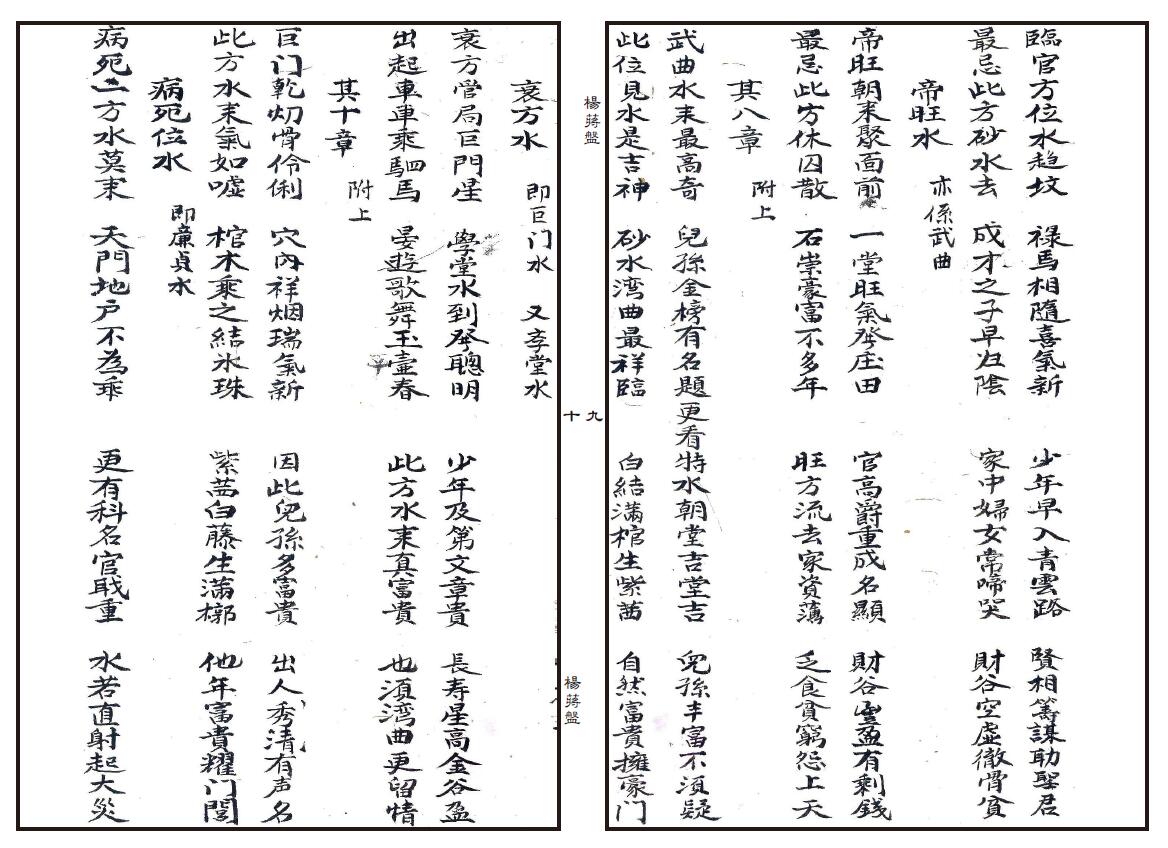 臨官方位水趋坟 祿馬相隨喜氣新 少年早入青雲路 賢相籌謀助聖君
最忌此方砂水去 成才之子早归陰 家中婦女常啼哭 財谷空虛徹骨貧
帝旺水 亦係武曲
帝旺朝来聚面前 一堂旺氣發庄田 官高爵重成名顯 財谷豊盈有剩錢
最忌此方休囚散 石崇豪富不多年 旺方流去家資薄 乏食貧窮怨上天
其八章 附上
武曲水来最高奇 兒孫金榜有名題 更看特水朝堂吉堂吉 兒孫丰富不須疑
此位見水是吉神 砂水湾曲最祥臨 白結滿棺生紫茜 自然富貴擁豪门
楊蔣盤
十九
楊蔣盤
衰方水 即巨门水 又孝堂水
衰方管局巨門星 學堂水到發聰明 少年及第文章貴 長寿星高金谷盈
出起車車乘駟馬 晏遊歌舞玉壷春 此方水来真富貴 也須湾曲更留情
其十章 附上
巨门乾灱骨伶俐 穴內祥烟瑞氣新 因此兒孫多富貴 出人秀清有声名
此方水来氣如嘘 棺木乘之結氷珠 紫茜白藤生滿槨 他年富貴耀门閭
病死位水 即廉貞水
病死二方水莫来 天門地户不為乖 更有科名官戢重 水若直射起大災